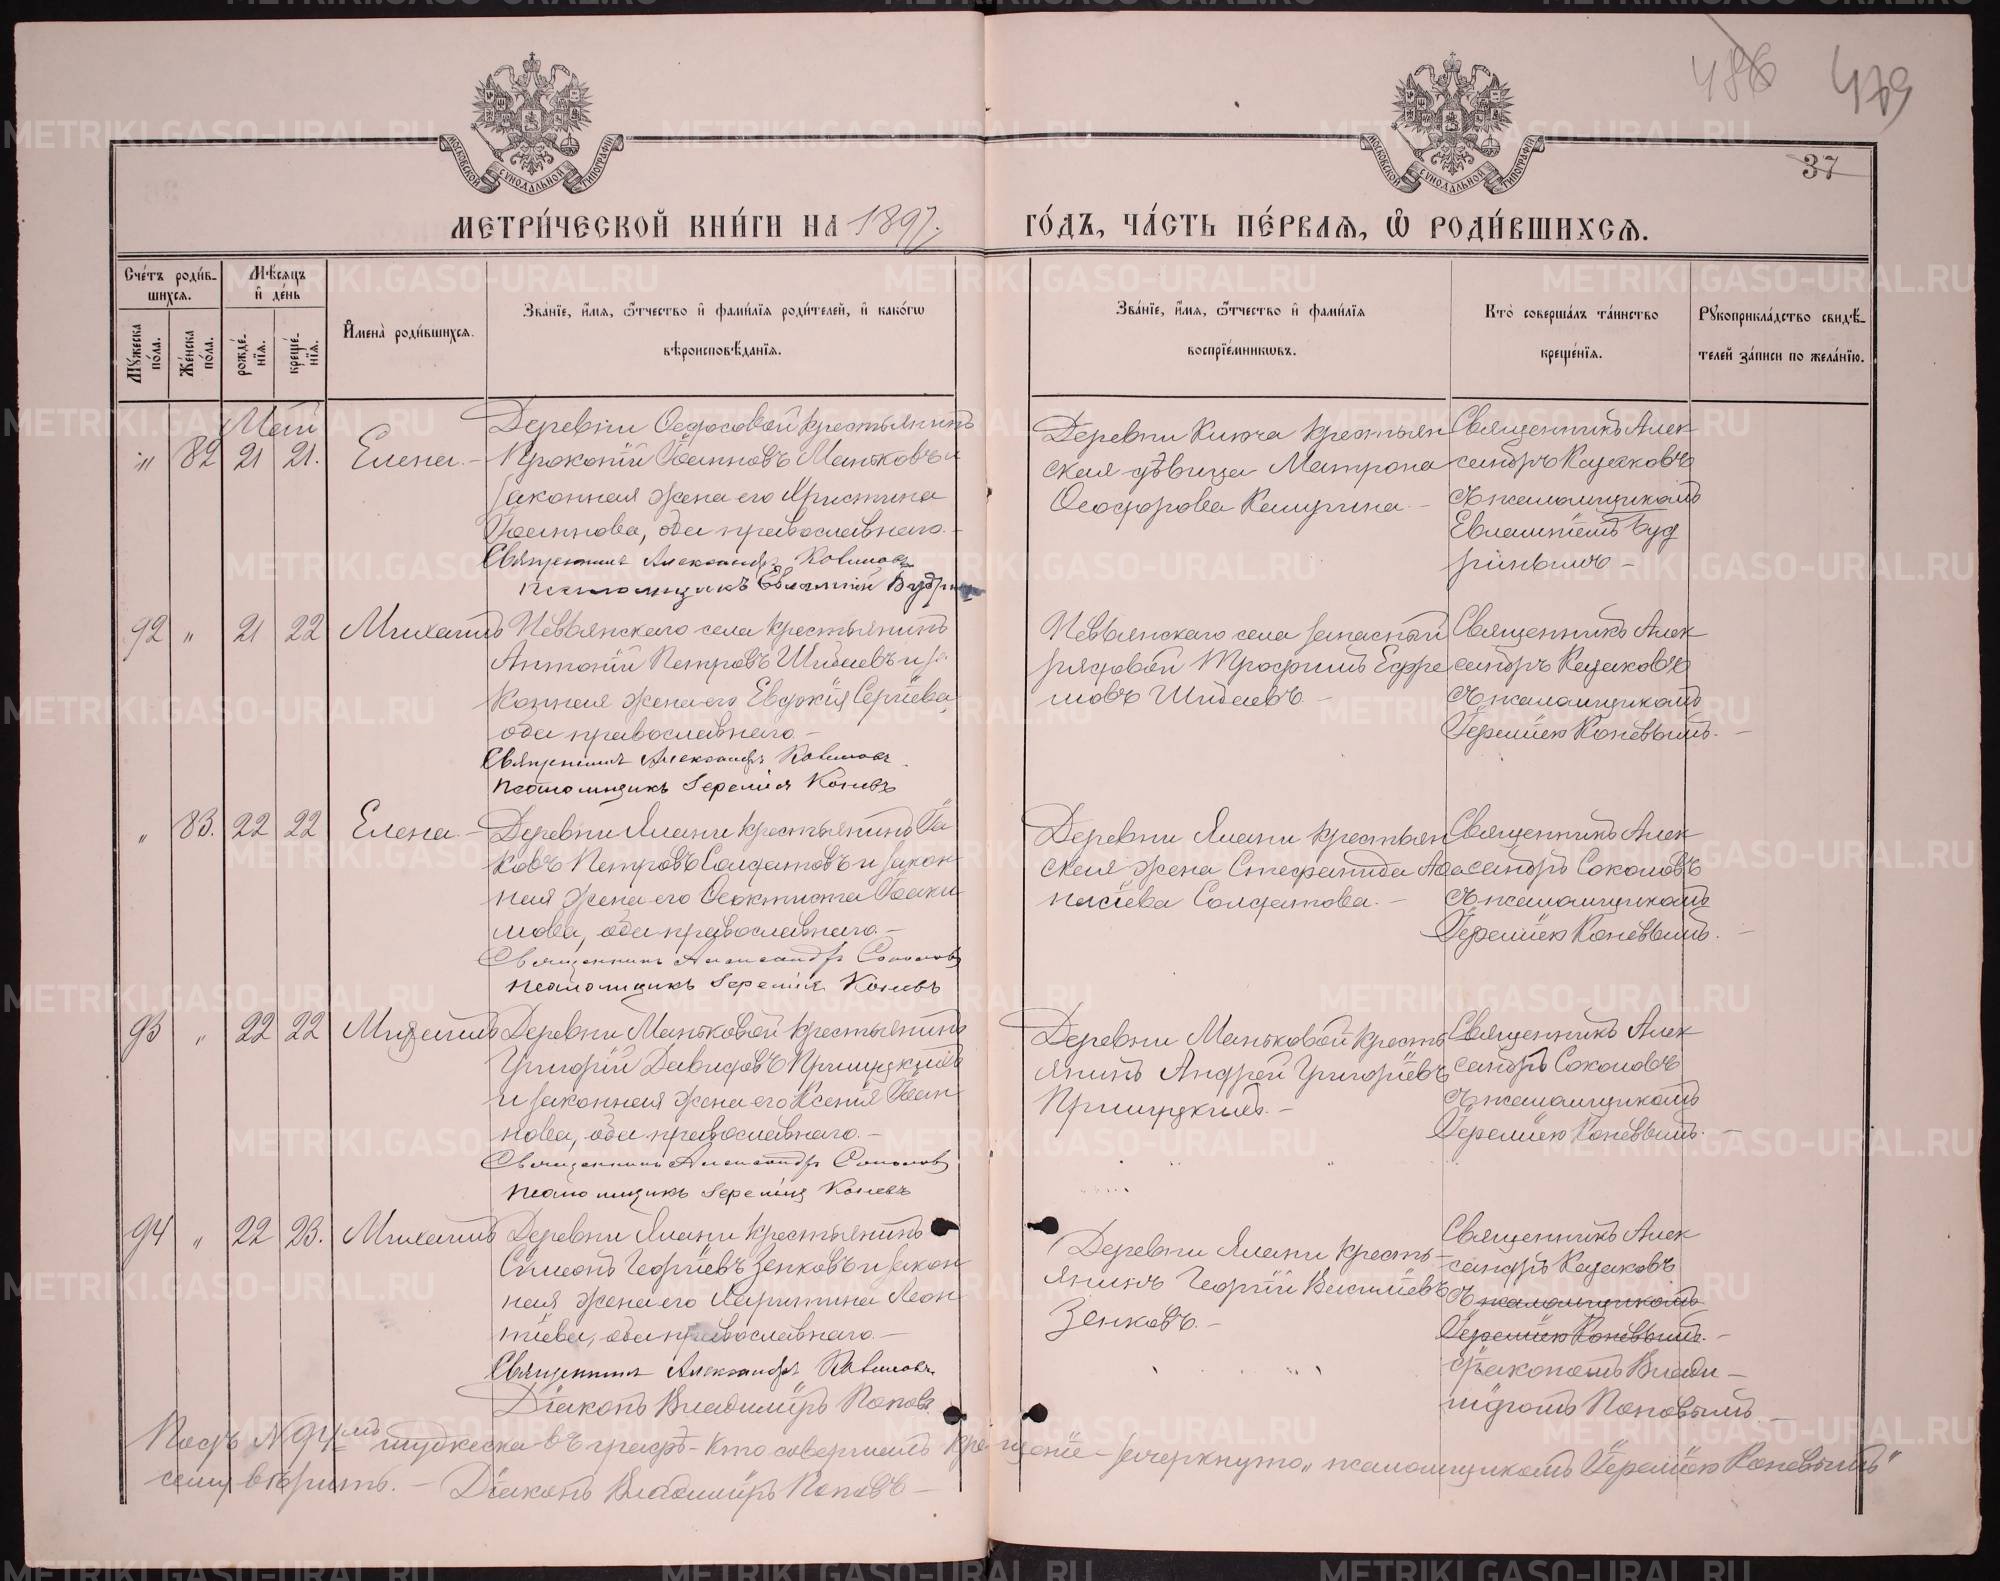 486 479
37
МЕТРИ́ЧЕСКОЙ КНИ́ГИ НА 1897. ГО́ДЪ, ЧА́СТЬ ПЕ́РВАѦ, Ѡ РОДИ́ВШИХСѦ.
Сче́тъ роди́в-
шихсѧ.
Мѣ́сѧцъ
и҆ де́нь
Мꙋ́жеска по́ла.
Же́нска по́ла.
рожде́-
нїѧ.
креще́-
нїѧ.
И҆мена̀ роди́вшихсѧ.
Зва́нїе, и҆́мѧ, ѻ҆́тчество и҆ фами́лїѧ роди́телей, и҆ како́гѡ
вѣроисповѣ́данїѧ.
Зва́нїе, и҆́мѧ, ѻ҆́тчество и҆ фами́лїѧ
воспрїе́мникѡвъ.
Кто̀ соверша́лъ та́инство
креще́нїѧ.
Рꙋкоприкла́дство свидѣ́-
телей за́писи по жела́нїю.
Май
" 82 21 21. Елена. –
Деревни Ѳедосовой крестьянинъ
Прокопій Іоанновъ Маньковъ и
законная жена его Христина
Іоаннова, оба православнаго. –
Священникъ Александръ Казаковъ
Псаломщикъ Евлампій Будрин
Деревни Ключа крестьян
ская дѣвица Матрона
Ѳеодорова Кашина. –
Священникъ Алек
сандръ Казаковъ
съ псаломщикомъ
Евлампіемъ Буд
ринымъ –
92 " 21 22 Михаилъ
Невьянскаго села крестьянинъ
Антоній Петровъ Шибаевъ и за
конная жена его Евдокія Сергіева,
оба православнаго. –
Священникъ Александръ Казаковъ.
Псаломщикъ Іеремія Коневъ
Невьянскаго села запасный
рядовой Трофимъ Ефре
мовъ Шибаевъ. –
Священникъ Алек
сандръ Казаковъ
съ псаломщикомъ
Іереміею Коневымъ. –
" 83. 22 22 Елена. –
Деревни Ялани крестьянинъ Іа
ковъ Петровъ Солдатовъ и закон
ная жена его Ѳеоктиста Іоаки
мова, оба православнаго. –
Священникъ Александръ Соколовъ
Псаломщикъ Іеремія Коневъ
Деревни Ялани крестьян
ская жена Стефанида Аѳа
насіева Солдатова. –
Священникъ Алек
сандръ Соколовъ
съ псаломщикомъ
Іереміею Коневымъ.
93 " 22 22 Михаилъ
Деревни Маньковой крестьянинъ
Григорій Давидовъ
и законная жена его Ксенія Іоан
нова, оба православнаго. –
Священникъ Александръ Соколовъ
Псаломщикъ Іеремія Коневъ
Деревни Маньковой кресть
янинъ Андрей Григоріевъ
Священникъ Алек
сандръ Соколовъ
съ псаломщикомъ
Іереміею Коневымъ. –
94 " 22 23. Михаилъ
Деревни Ялани крестьянинъ
Симеонъ Георгіевъ Зенковъ и закон
ная жена его Харитина Леон
тіева, оба православнаго. –
Священникъ Александръ Казаковъ.
Діаконъ Владиміръ Поповъ.
Деревни Ялани кресть–
янинъ Георгій Василіевъ
Зенковъ. –
Священникъ Алек
сандръ Казаковъ
съ псаломщикомъ
Іереміею Коневымъ. –
діакономъ Влади–
міромъ Поповымъ –
Подъ № 94мъ мужеска въ графѣ – Кто совершалъ крещеніе – зачеркнуто „псаломщикомъ Іереміею Коневымъ"
сему вѣрить. – Діаконъ Владиміръ Поповъ –